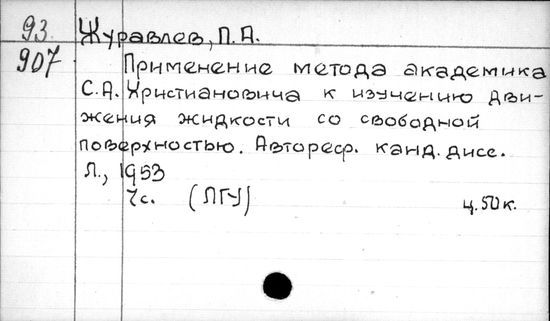 93 Журавлев, П.А.
907 Применение метода академика
С.А. Христиановича к изучению дви-
жения жидкости со свободной
поверхностью. Автореф. канд. дисс.
Л., 1953
7с. (ЛГУ) ц. 50 к.